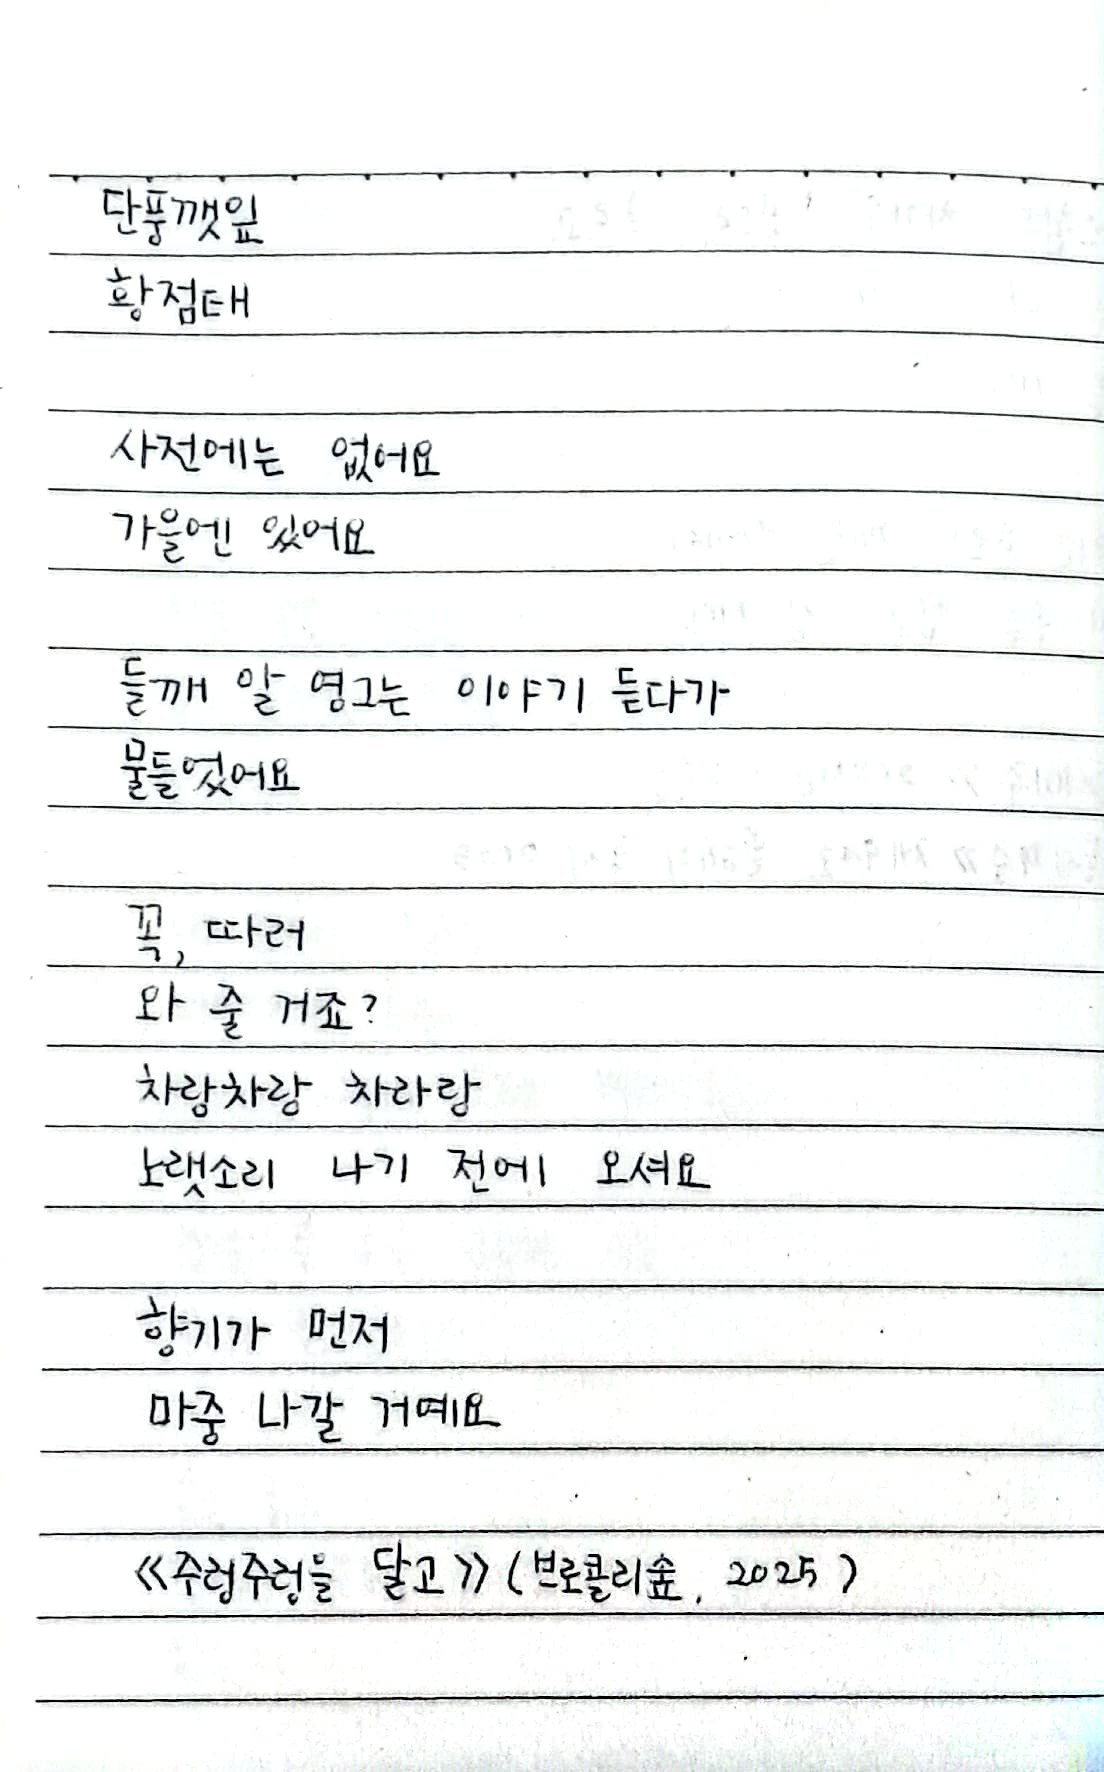 단풍깻잎
황점태
사전에는 없어요
가을엔 있어요
들깨 알 영그는 이야기 듣다가
물들었어요
꼭, 따러
와 줄 거죠?
차랑차랑 차라랑
노랫소리 나기 전에 오셔요
향기가 먼저
마중 나갈 거예요
《주렁주렁을 달고》(브로콜리숲, 2025)